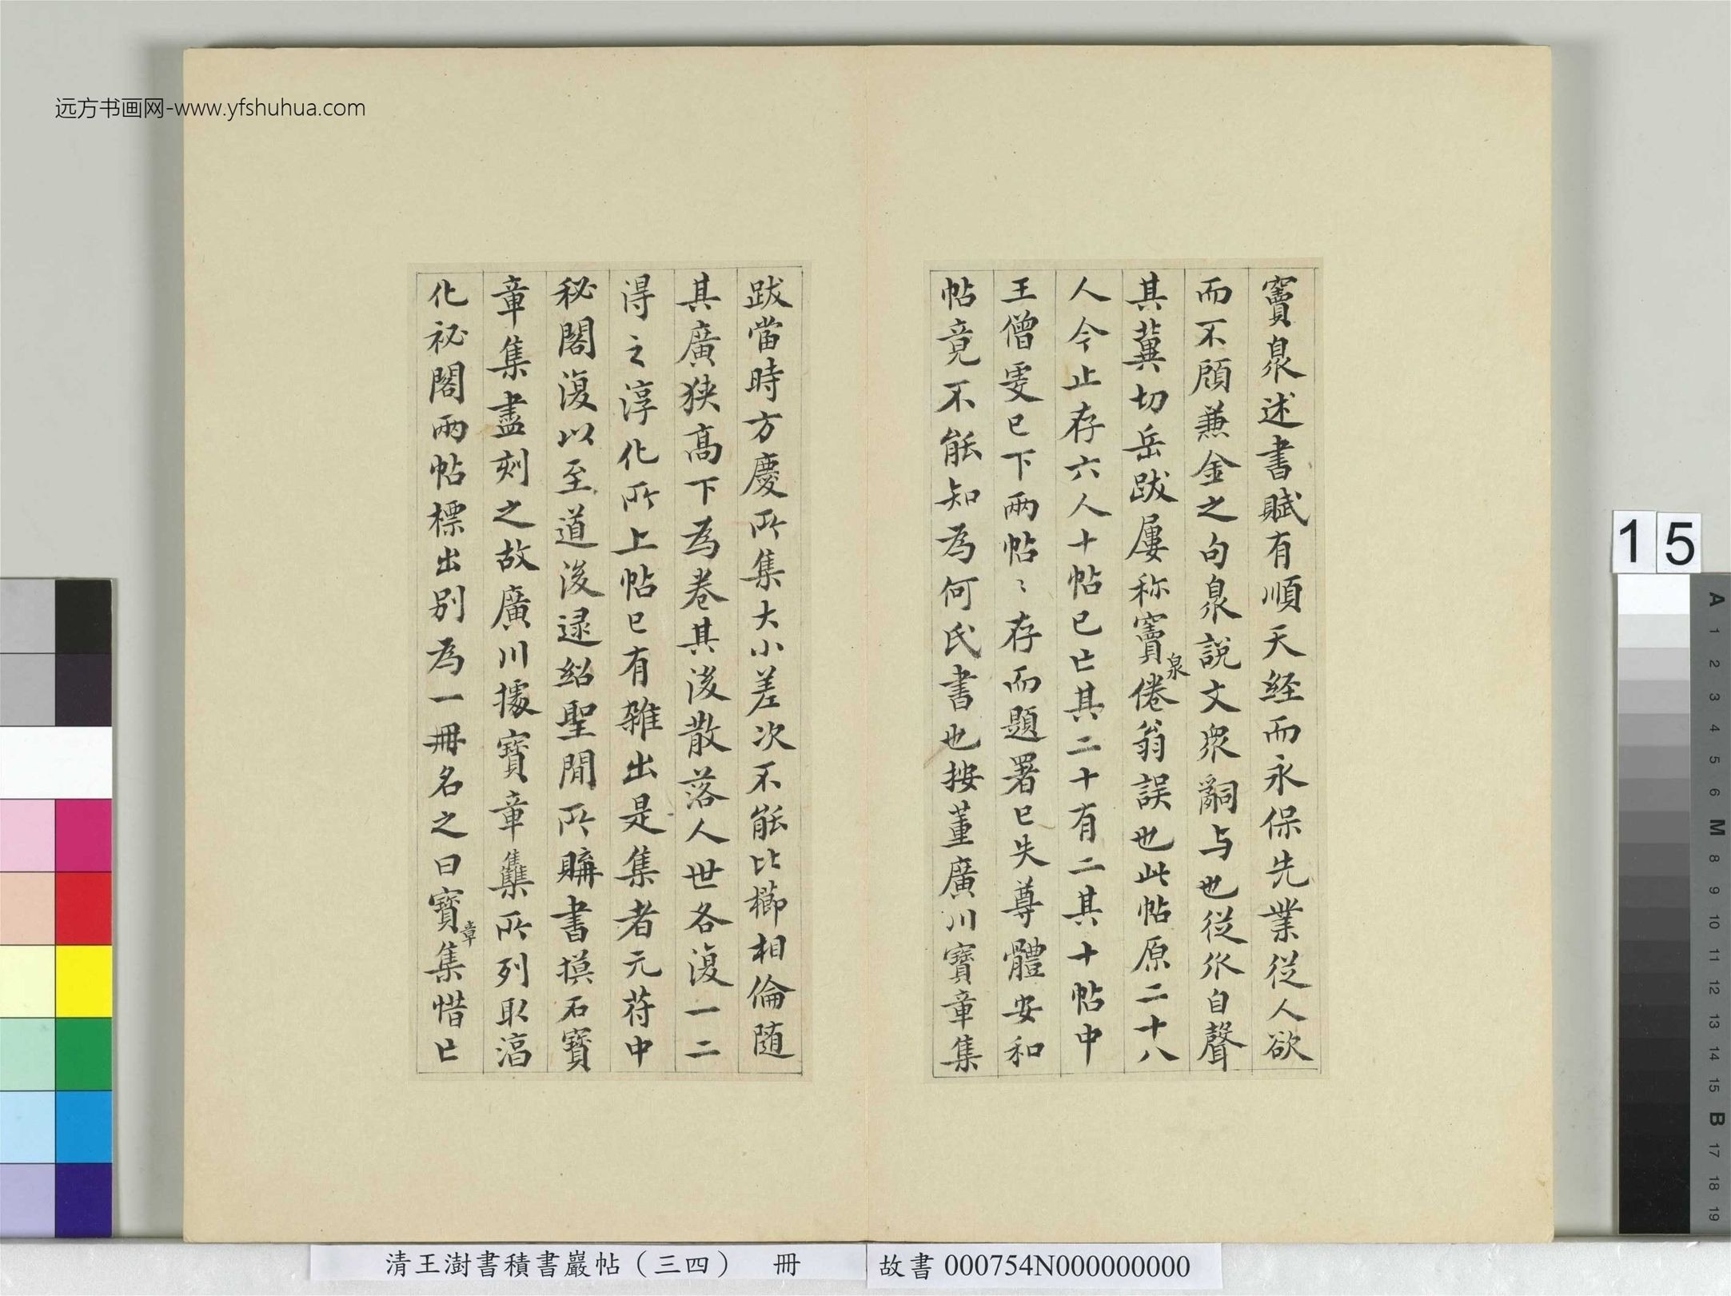 远方书画网-www.yfshuhua.com
竇臮述書賦有順天経而永保先業従人欲
而不顧兼金之句臮說文衆辭与也従㐺自聲
其冀切岳跋屢称竇臮倦翁誤也此帖原二十八
人今止存六人十帖已亡其二十有二其十帖中
王僧䖍已下兩帖〻存而題署已失尊體安和
帖竟不能知為何氏書也按董廣川寶章集
跋當時方慶所集大小差次不能比櫛相倫随
其廣狭髙下為卷其後散落人世各復一二
得之淳化所上帖已有雜出是集者元符中
秘閣復以至道後逯紹聖間所購書摸石寶
章集盡刻之故廣川據寶章集所列取淳
化祕閣兩帖標出别為一冊名之曰寶章集惜亡
15
A 1 2 3 4 5 6 M 8 9 10 11 12 13 14 15 B 17 18 19
清王澍書積書巖帖（三四） 冊
故書 000754N000000000